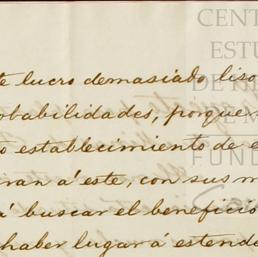 CENT
ESTU
DE H
FUN
te lucro demasiado liso
obabilidades, porque
o establecimiento de e
iran a' este, con sus m
a' buscar el beneficio
haber lugar a' estende